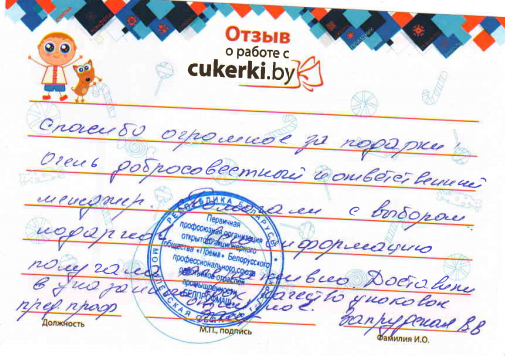 Отзыв
о работе с
cukerki.by
Спасибо огромное за подарки!
Очень добросовестный и ответственный
менеджер. с выбором
информацию
получала Доставили
в указанный качество упаковок
пред проф Запрудская В В
РЕСПУБЛИКА БЕЛАРУСЬ
Первичная
профсоюзная организация
открытого акционерного
общества Белорусского
профессионального союза
работников
промышленности
БЕЛПРОФМАШ
Должность
М.П., подпись
Фамилия И.О.